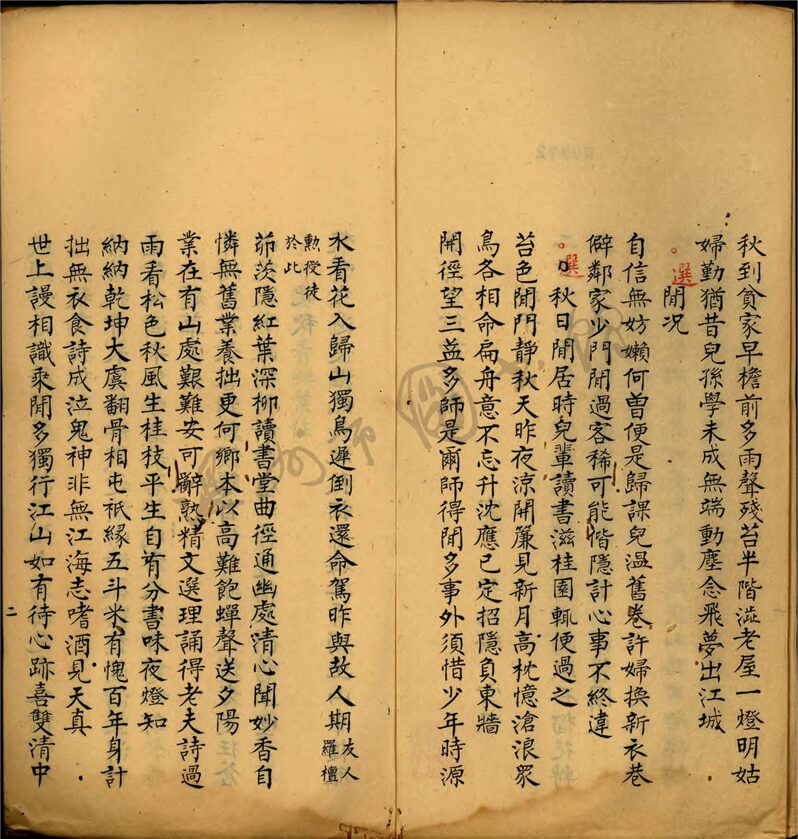 秋到貧家早檐前多雨聲殘苔半階澁老屋一燈明姑
婦勤猶昔兒孫學未成無端動塵念飛夢出江城
選
閒况
自信無妨嬾何曾便是歸課兒溫舊卷許婦換新衣巷
僻鄰家少門閒過客稀可能偕隱計心事不終違
選
秋日閒居時兒輩讀書滋桂園輒便過之
苔色閒門靜秋天昨夜涼開簾見新月高枕憶滄浪眾
鳥各相命扁舟意不忘升沈應已定招隱負東牆
開徑望三益多師是爾師得閒多事外須惜少年時源
水看花入歸山獨鳥遲倒衣還命駕昨與故人期友人
羅檀
勲授徒
於此
茆茨隱紅葉深柳讀書堂曲徑通幽處清心聞妙香自
憐無舊業養拙更何鄉本以高難飽蟬聲送夕陽
業在有山處艱難安可辭熟精文選理誦得老夫詩過
雨看松色秋風生桂枝平生自有分書味夜燈知
納納乾坤大虞翻骨相屯祇緣五斗米有愧百年身計
拙無衣食詩成泣鬼神非無江海志嗜酒見天真
世上謾相識乘閒多獨行江山如有待心跡喜雙清中
二